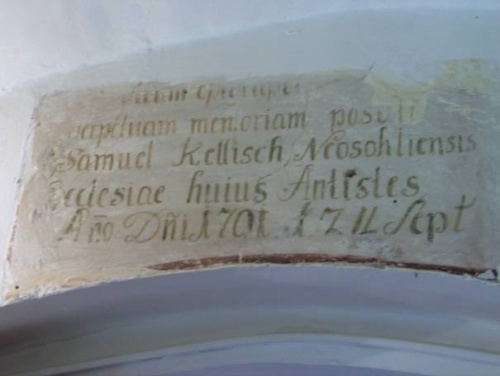 perpetuam mem̄oriam posuit
Samuel Kellisch, Neosohliensis
Ecclesiae huius Antistes
Año Dñi 1701
Sept